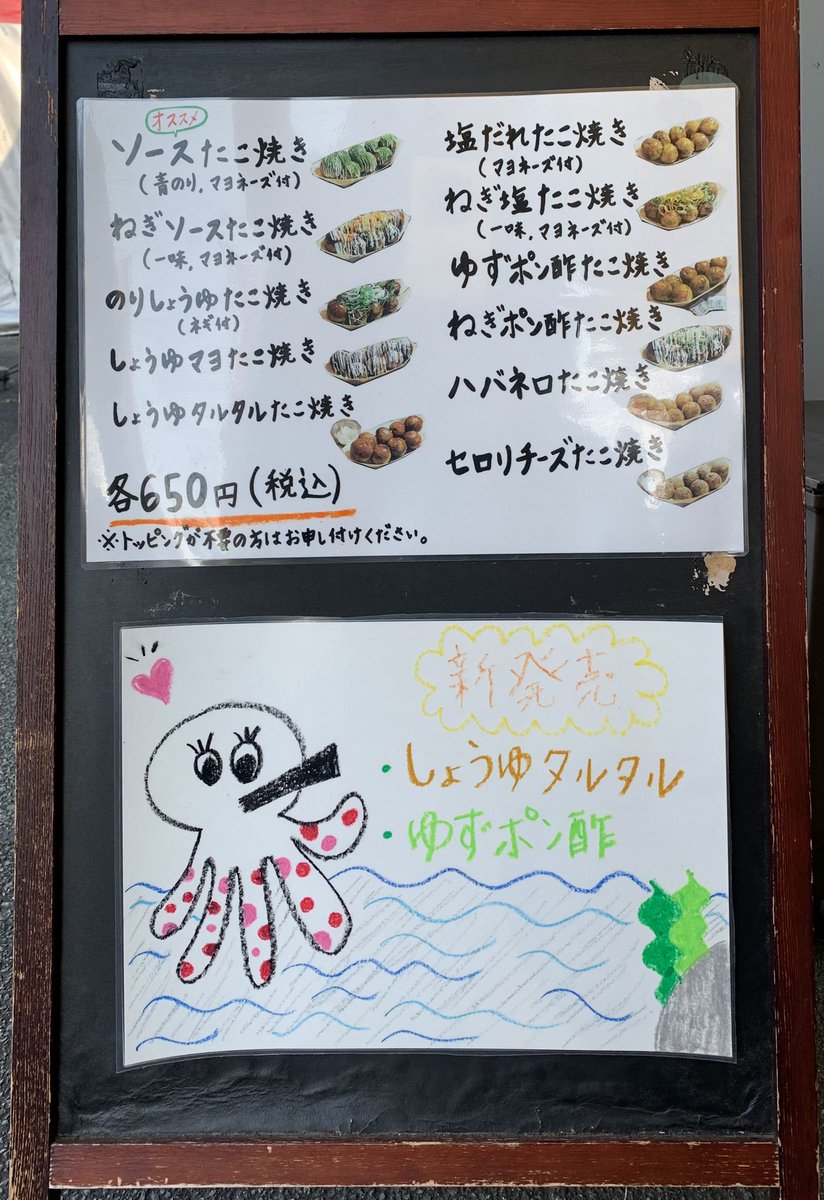 オススメ
ソースたこ焼き
(青のり,マヨネーズ付)
ねぎソースたこ焼き
(一味,マヨネーズ付)
のりしょうゆたこ焼き
(ネギ付)
しょうゆマヨたこ焼き
しょうゆタルタルたこ焼き
各650円(税込)
※トッピングが不要の方はお申し付けください。
塩だれたこ焼き
(マヨネーズ付)
ねぎ塩たこ焼き
(一味,マヨネーズ付)
ゆずポン酢たこ焼き
ねぎポン酢たこ焼き
ハバネロたこ焼き
セロリチーズたこ焼き
新発売
・しょうゆタルタル
・ゆずポン酢